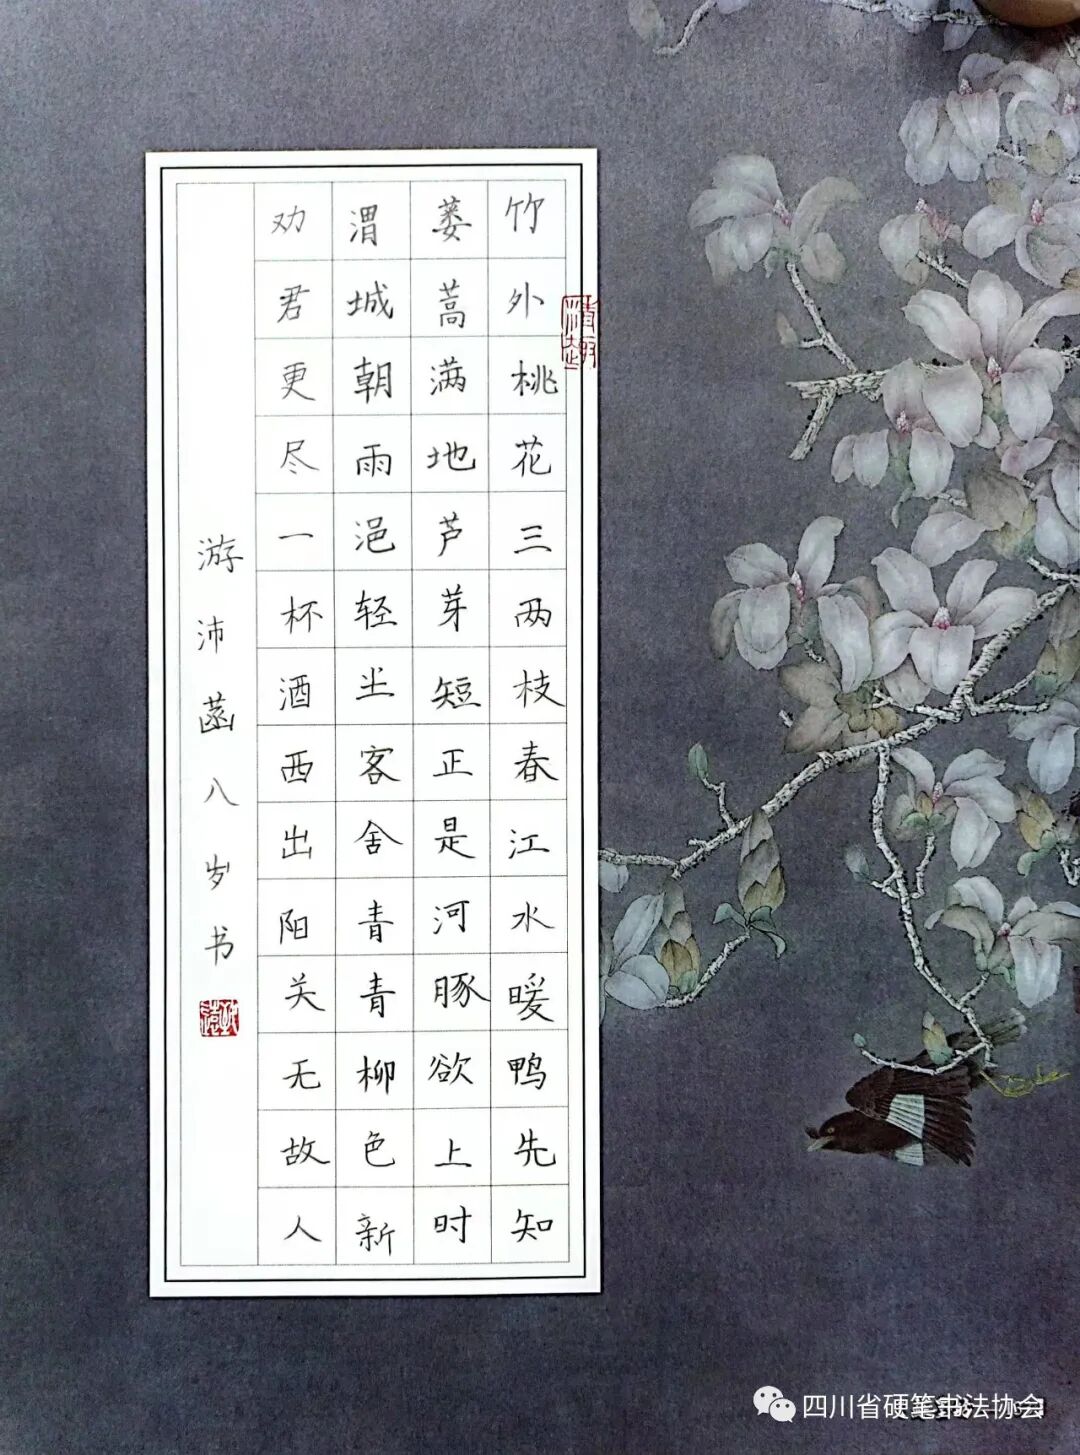 竹外桃花三两枝春江水暖鸭先知
蒌蒿满地芦芽短正是河豚欲上时
渭城朝雨浥轻尘客舍青青柳色新
劝君更尽一杯酒西出阳关无故人
游沛菡八岁书
四川省硬笔书法协会